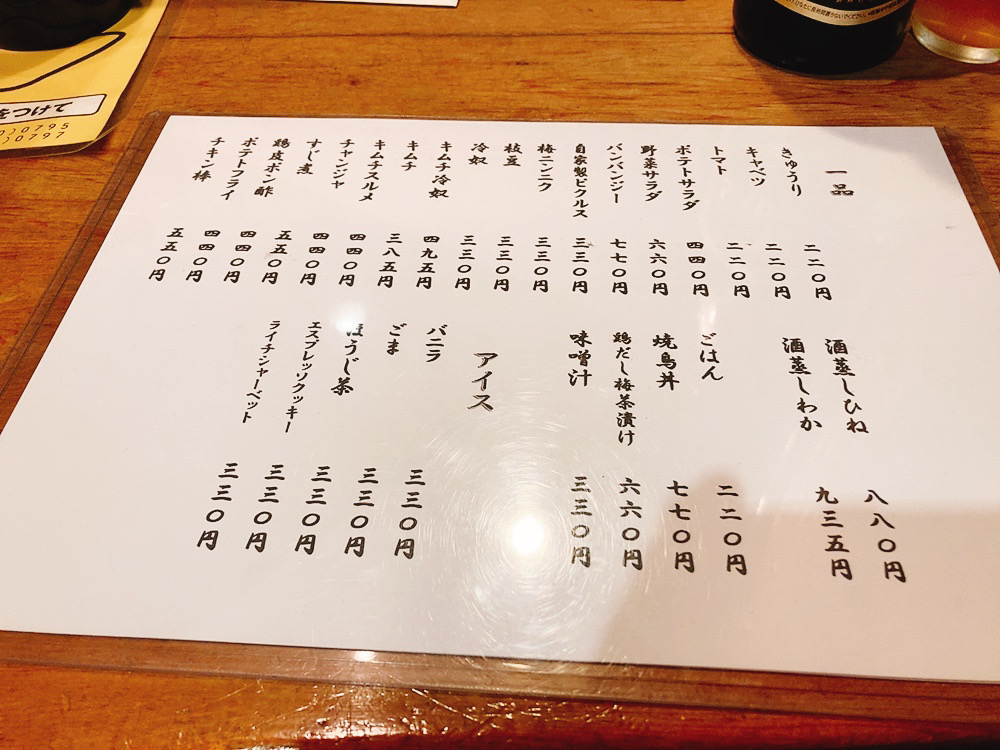 をつけて
)0795
)0797
一品
きゅうり 二二〇円
キャベツ 二二〇円
トマト 二二〇円
ポテトサラダ 四四〇円
野菜サラダ 六六〇円
バンバンジー 七七〇円
自家製ピクルス 三三〇円
梅ニンニク 三三〇円
枝豆 三三〇円
冷奴 三三〇円
キムチ冷奴 四九五円
キムチ 三八五円
キムチスルメ 四四〇円
チャンジャ 四四〇円
すじ煮 五五〇円
鶏皮ポン酢 四四〇円
ポテトフライ 四四〇円
チキン棒 五五〇円
酒蒸しひね 八八〇円
酒蒸しわか 九三五円
ごはん 二二〇円
焼鳥丼 七七〇円
鶏だし梅茶漬け 六六〇円
味噌汁 三三〇円
アイス
バニラ 三三〇円
ごま 三三〇円
ほうじ茶 三三〇円
エスプレッソクッキー 三三〇円
ライチシャーベット 三三〇円